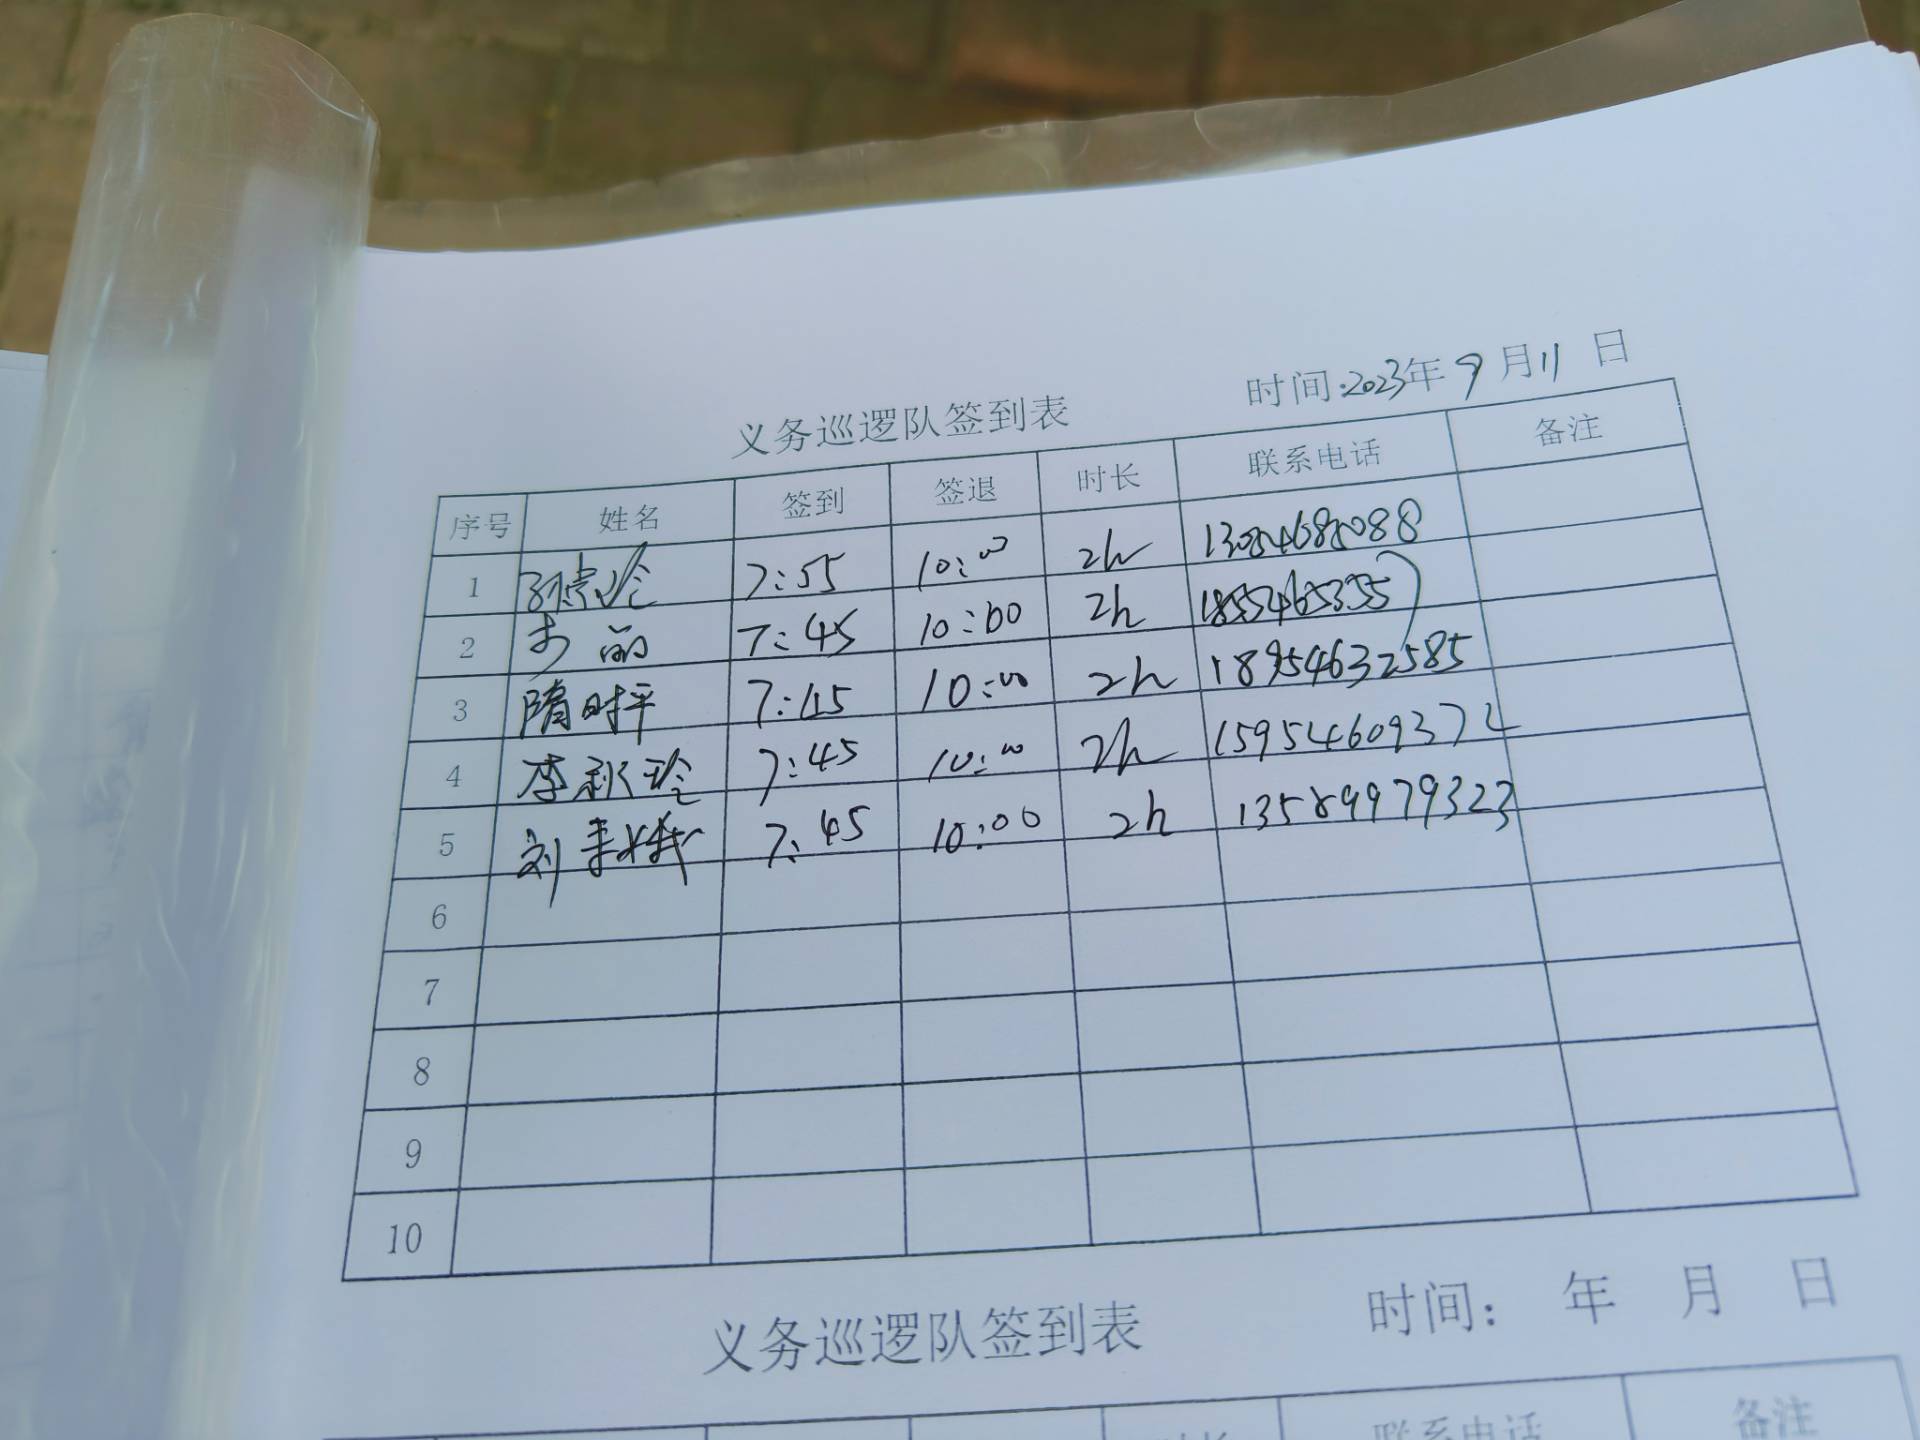 时间:2023年9月11日
义务巡逻队签到表
序号 姓名 签到 签退 时长 联系电话 备注
1 7:55 10:00 2h 13054685088
2 7:45 10:00 2h
3 隋时平 7:45 10:00 2h 18954632585
4 李秋玲 7:45 10:00 2h 15954609372
5 刘 7:45 10:00 2h 13589979323
6
7
8
9
10
义务巡逻队签到表
时间: 年 月 日
联系电话 备注